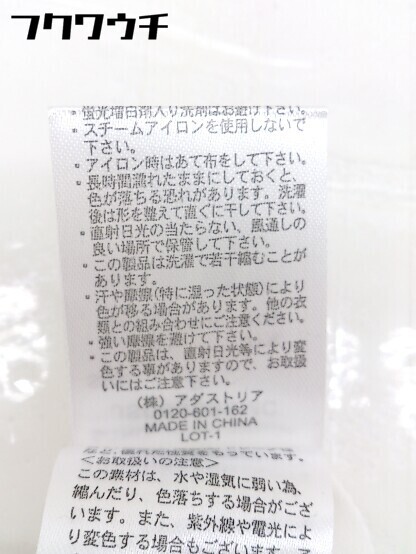 フクワウチ
・蛍光増白剤入り洗剤はお避け下さい。
・スチームアイロンを使用しないで
下さい。
・アイロン時はあて布をして下さい。
・長時間濡れたままにしておくと、
色が落ちる恐れがあります。洗濯
後は形を整えて直ぐに干して下さい。
・直射日光の当たらない、風通しの
良い場所で保管して下さい。
・この製品は洗濯で若干縮むことが
あります。
・汗や摩擦(特に湿った状態)により
色が移る場合があります。他の衣
類との組み合わせにご注意ください。
・強い摩擦を避けて下さい。
・この製品は、直射日光等により変
色する事がありますので、お取扱
いにはご注意下さい。
(株) アダストリア
0120-601-162
MADE IN CHINA
LOT-1
など、優れた性質をもっています。
<お取扱いの注意>
この素材は、水や湿気に弱い為、
縮んだり、色落ちする場合がござ
います。また、紫外線や電光によ
り変色する場合もございます。